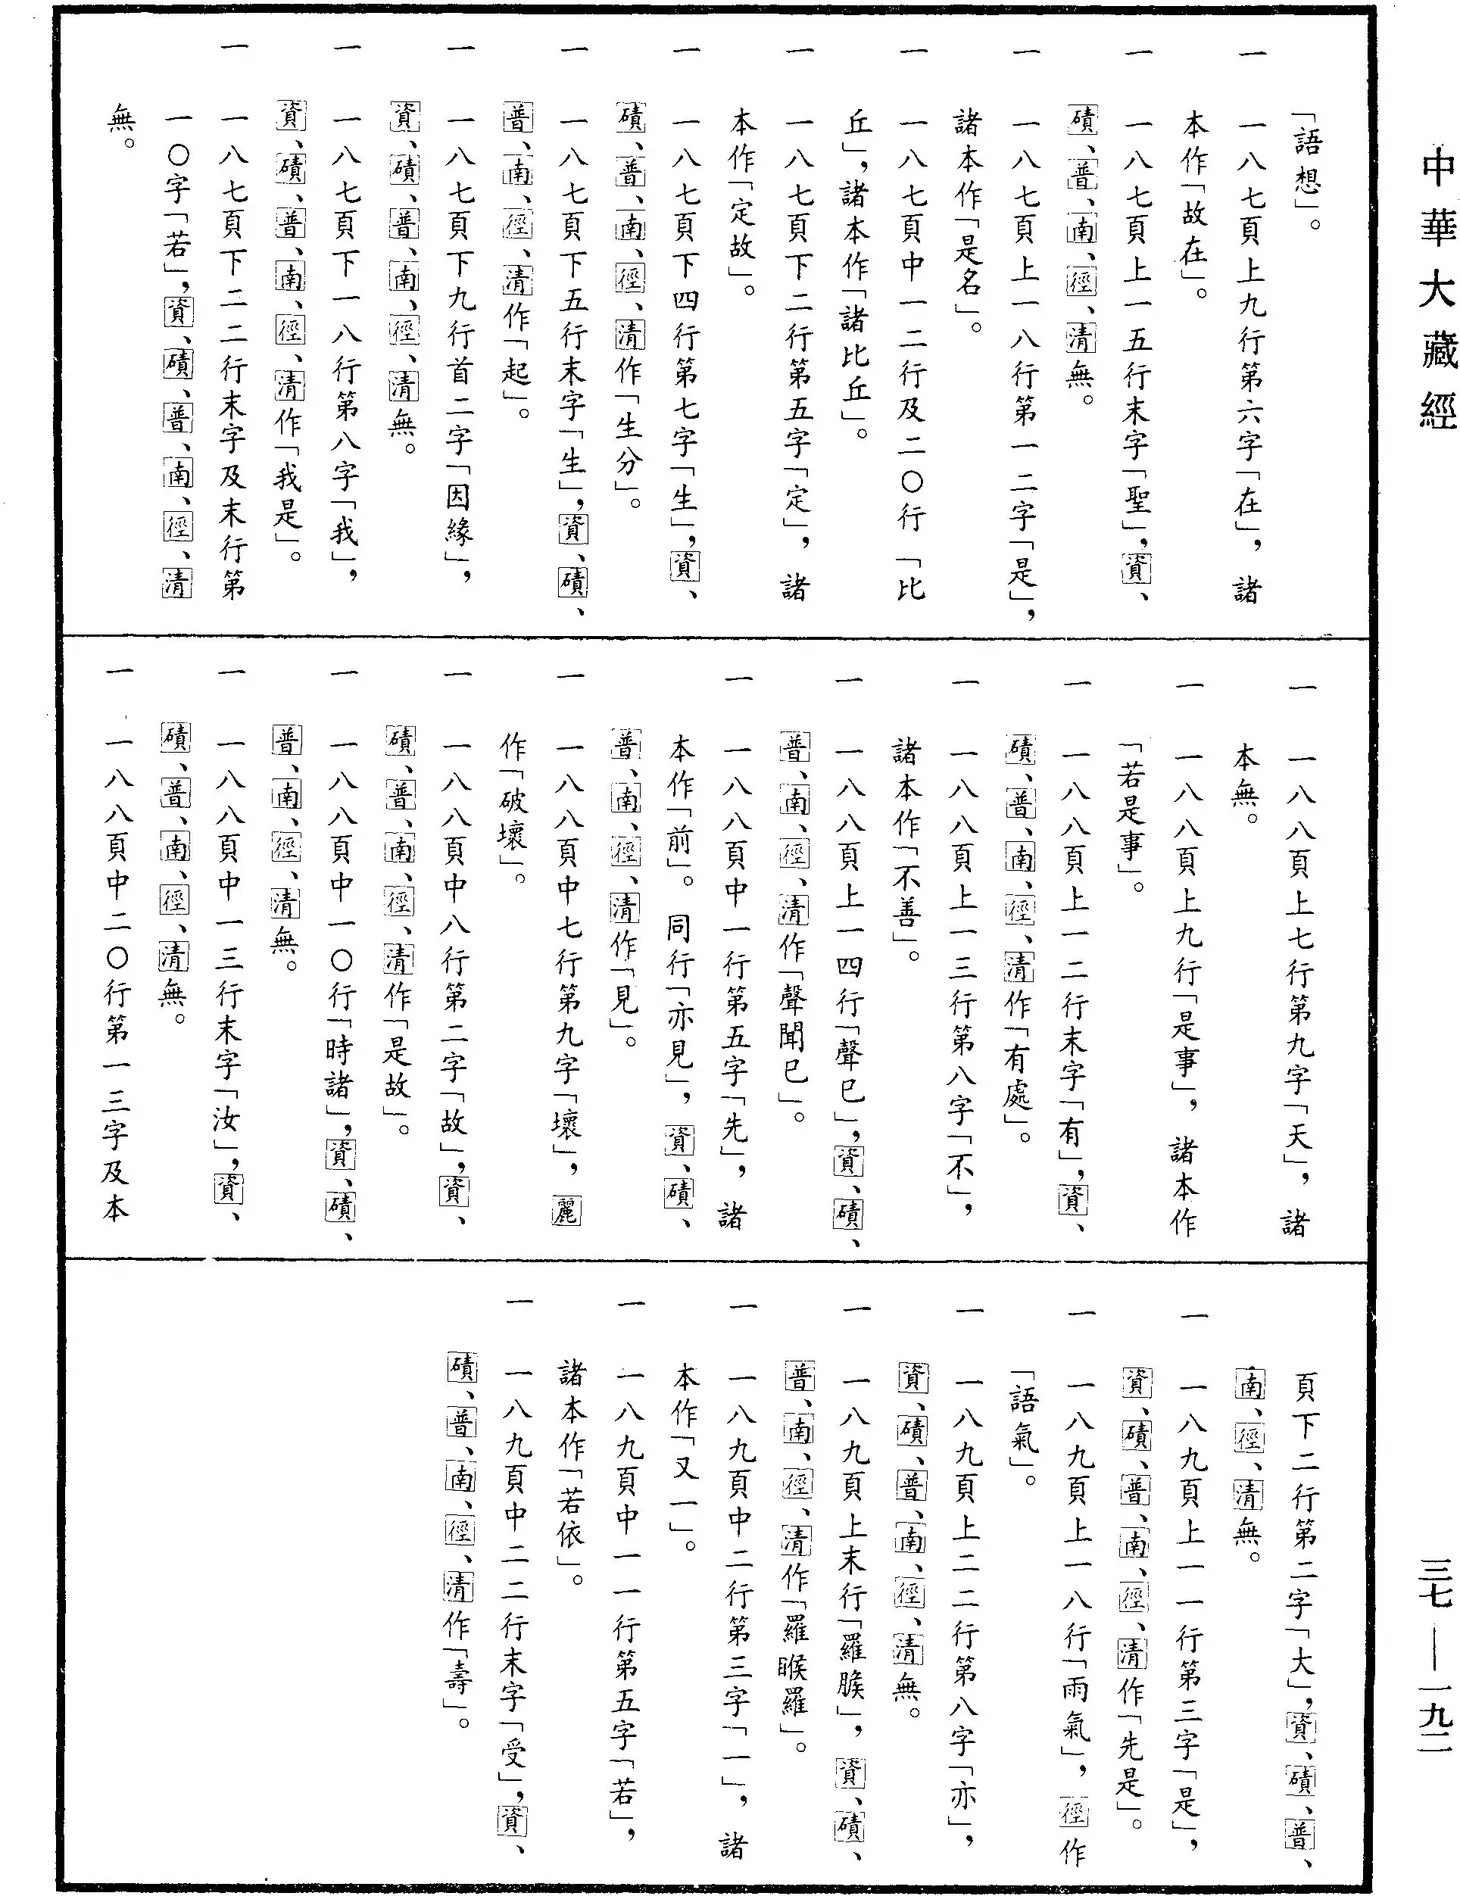 中華大藏經
三七—一九二
「語想」。
一 一八七頁上九行第六字「在」，諸
本作「故在」。
一 一八七頁上一五行末字「聖」，資、
磧、普、南、徑、清無。
一 一八七頁上一八行第一二字「是」，
諸本作「是名」。
一 一八七頁中一二行及二〇行「比
丘」，諸本作「諸比丘」。
一 一八七頁下二行第五字「定」，諸
本作「定故」。
一 一八七頁下四行第七字「生」，資、
磧、普、南、徑、清作「生分」。
一 一八七頁下五行末字「生」，資、磧、
普、南、徑、清作「起」。
一 一八七頁下九行首二字「因緣」，
資、磧、普、南、徑、清無。
一 一八七頁下一八行第八字「我」，
資、磧、普、南、徑、清作「我是」。
一 一八七頁下二二行末字及末行第
一〇字「若」，資、磧、普、南、徑、清
無。
一 一八八頁上七行第九字「天」，諸
本無。
一 一八八頁上九行「是事」，諸本作
「若是事」。
一 一八八頁上一二行末字「有」，資、
磧、普、南、徑、清作「有處」。
一 一八八頁上一三行第八字「不」，
諸本作「不善」。
一 一八八頁上一四行「聲巳」，資、磧、
普、南、徑、清作「聲聞巳」。
一 一八八頁中一行第五字「先」，諸
本作「前」。同行「亦見」，資、磧、
普、南、徑、清作「見」。
一 一八八頁中七行第九字「壞」，麗
作「破壞」。
一 一八八頁中八行第二字「故」，資、
磧、普、南、徑、清作「是故」。
一 一八八頁中一〇行「時諸」，資、磧、
普、南、徑、清無。
一 一八八頁中一三行末字「汝」，資、
磧、普、南、徑、清無。
一 一八八頁中二〇行第一三字及本
頁下二行第二字「大」，資、磧、普、
南、徑、清無。
一 一八九頁上一一行第三字「是」，
資、磧、普、南、徑、清作「先是」。
一 一八九頁上一八行「雨氣」，徑作
「語氣」。
一 一八九頁上二二行第八字「亦」，
資、磧、普、南、徑、清無。
一 一八九頁上末行「羅睺」，資、磧、
普、南、徑、清作「羅睺羅」。
一 一八九頁中二行第三字「一」，諸
本作「又一」。
一 一八九頁中一一行第五字「若」，
諸本作「若依」。
一 一八九頁中二二行末字「受」，資、
磧、普、南、徑、清作「壽」。